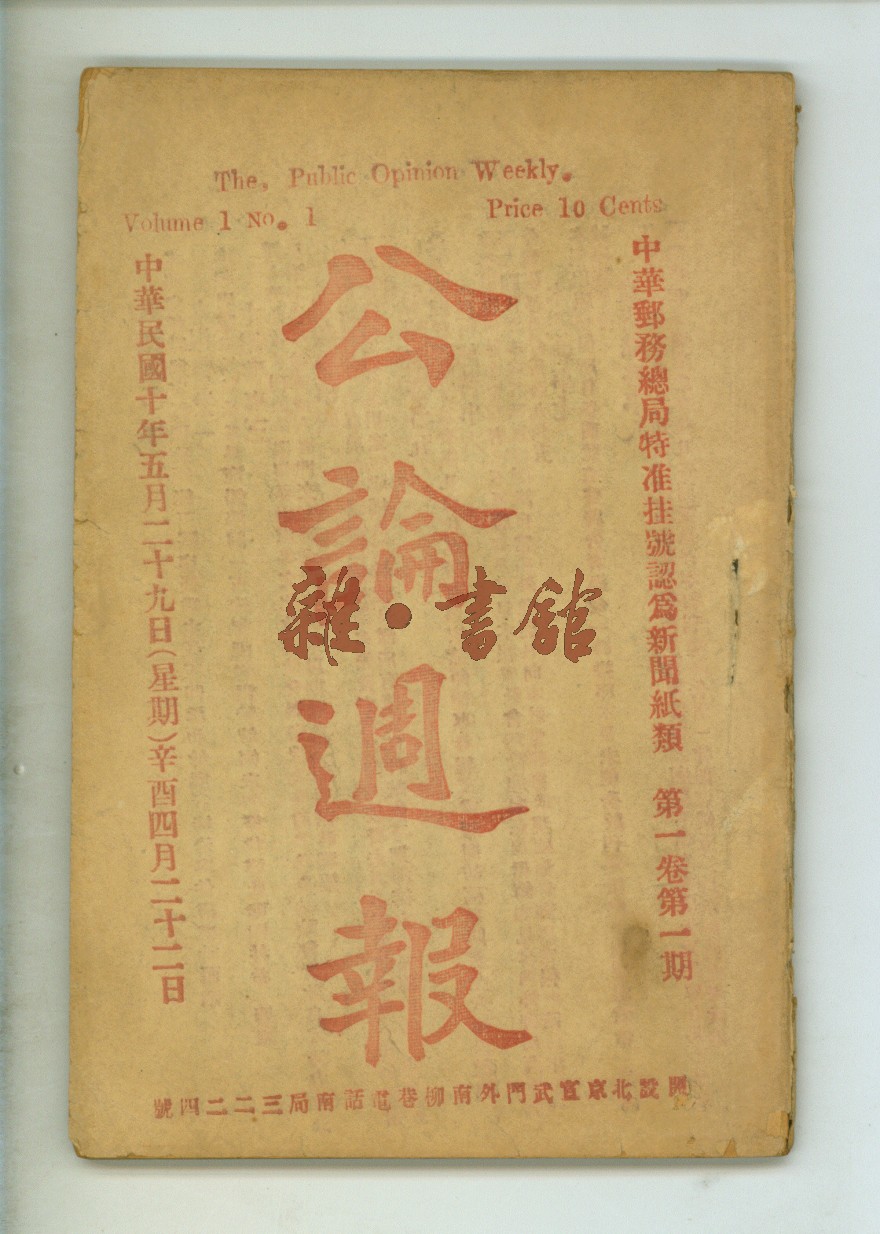 The, Public Opinion Weekly.
Volume 1 No. 1 Price 10 Cents
中華郵務總局特准挂號認爲新聞紙類 第一卷第一期
公論週報
中華民國十年五月二十九日（星期）辛酉四月二十二日
開設北京宣武門外南柳巷電話南局三二二四號
雜·書館